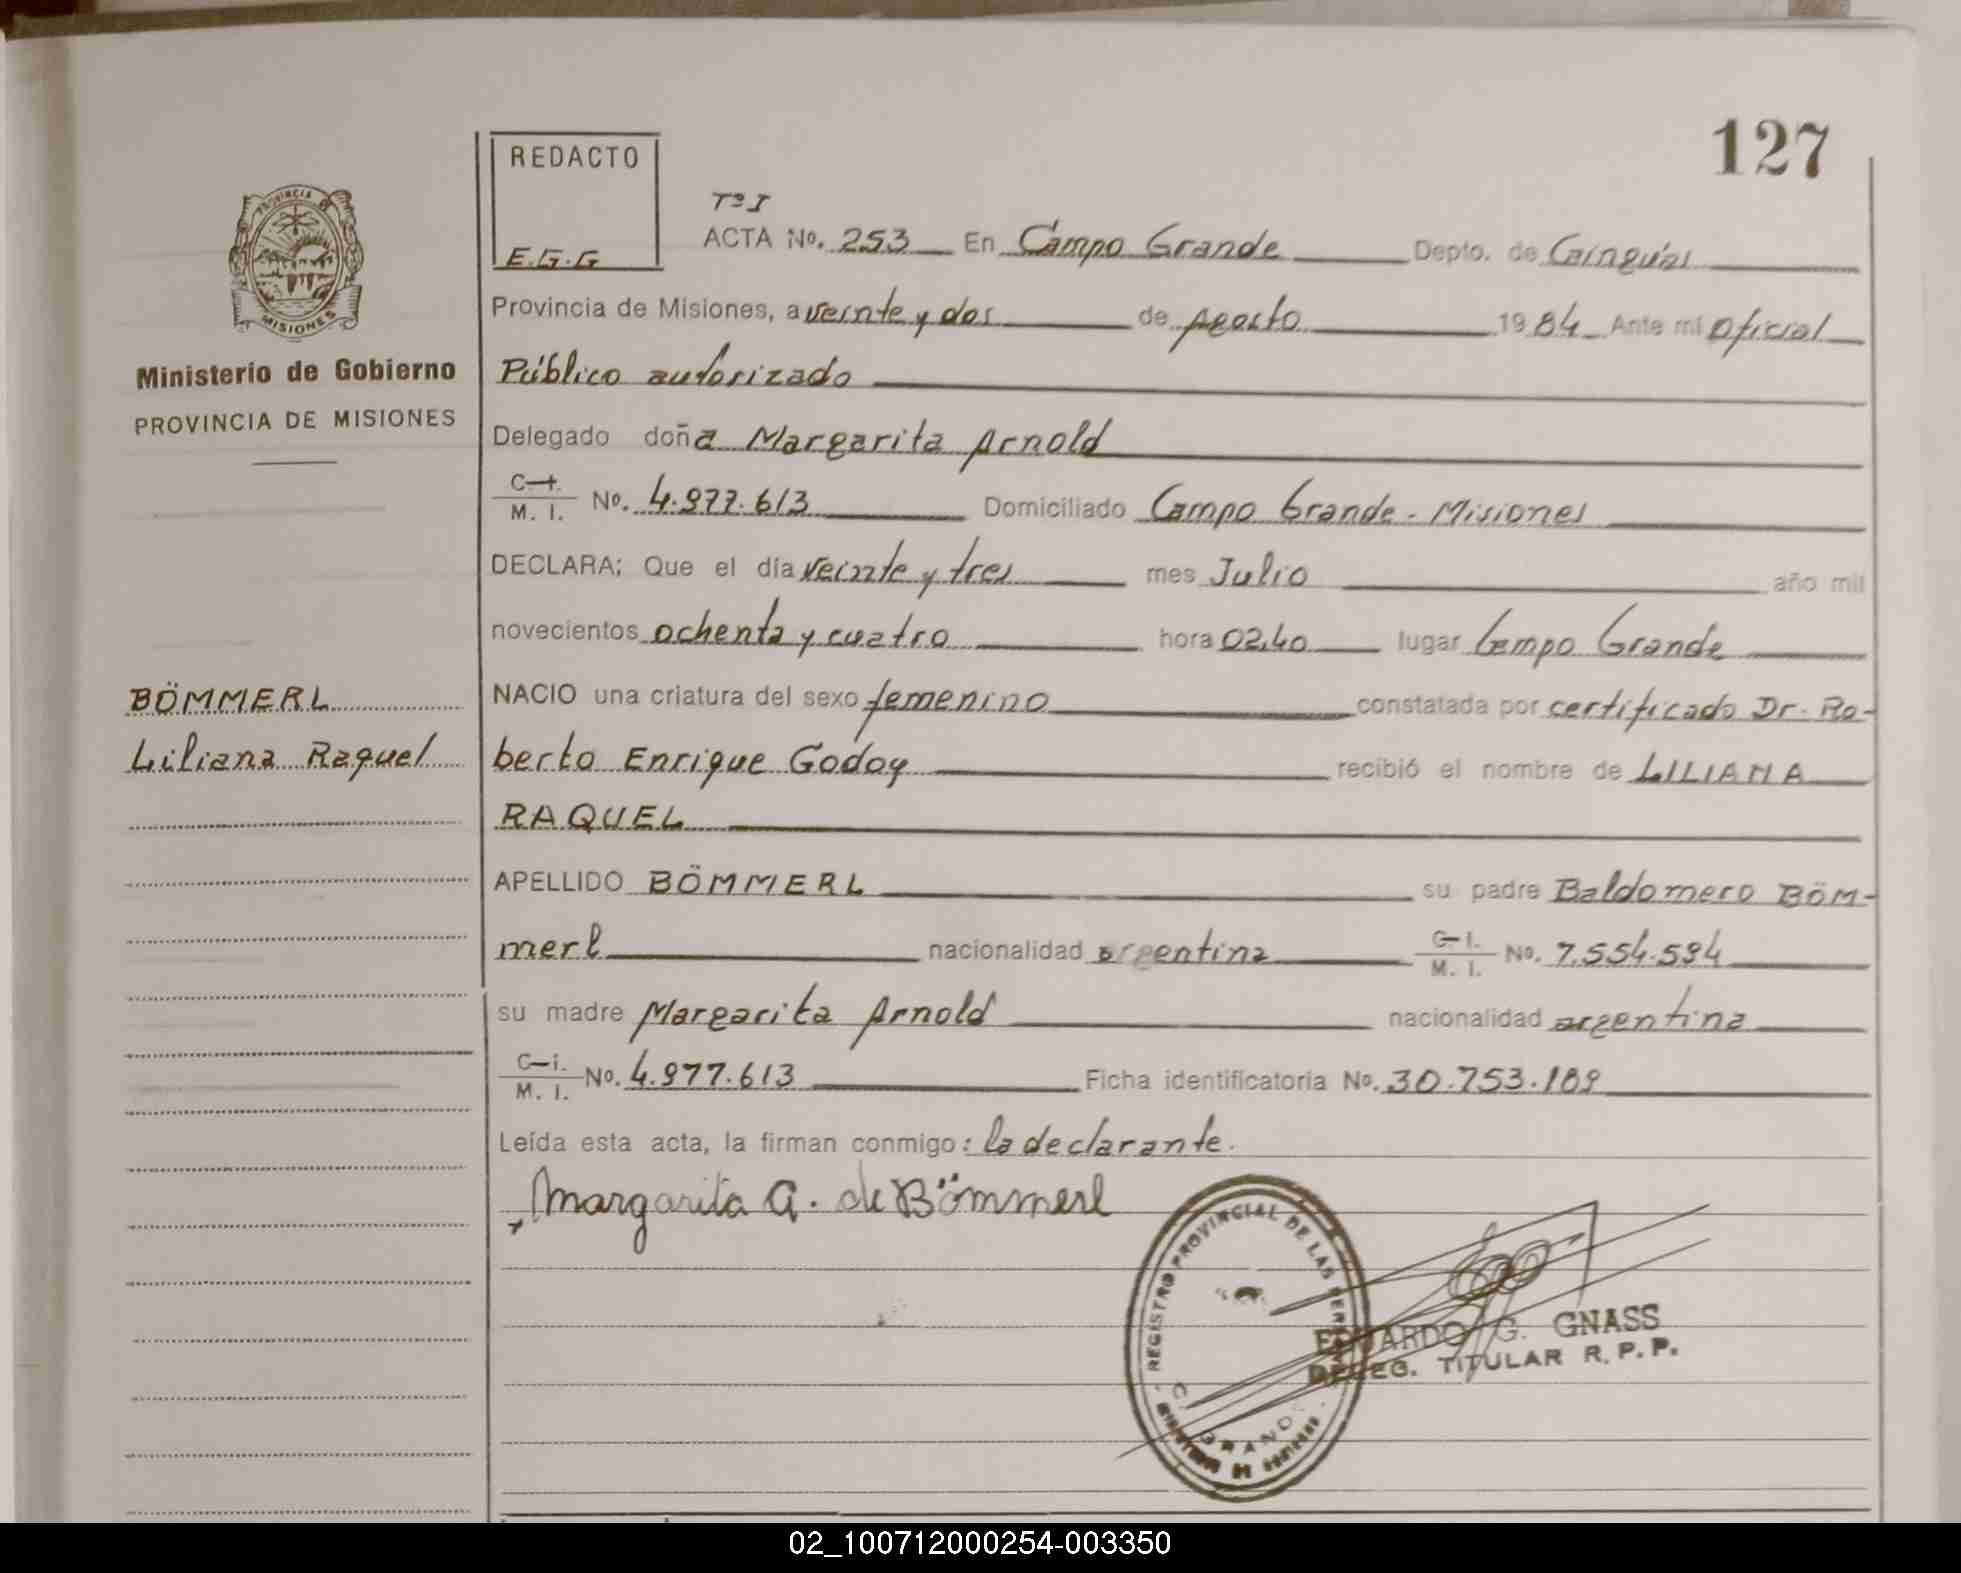 127
REDACTO
E.G.G
Tº I
ACTA No. 253 En Campo Grande Depto. de Cainguás
Provincia de Misiones, a veinte y dos de Agosto 1984 Ante mí Oficial
Público autorizado
Delegado doña Margarita Arnold
C. I. M. I. No. 4.977.613 Domiciliado Campo Grande - Misiones
DECLARA; Que el día veinte y tres mes Julio año mil
novecientos ochenta y cuatro hora 02,40 lugar Campo Grande
NACIO una criatura del sexo femenino constatada por certificado Dr. Ro-
berto Enrique Godoy recibió el nombre de LILIANA
RAQUEL
APELLIDO BÖMMERL su padre Baldomero BÖM-
merl nacionalidad argentina C. I. M. I. No. 7.554.594
su madre Margarita Arnold nacionalidad argentina
C. i. M. I. No. 4.977.613 Ficha identificatoria No. 30.753.189
Leída esta acta, la firman conmigo: la declarante.
Margarita A. de Bömmerl
PROVINCIA
MISIONES
Ministerio de Gobierno
PROVINCIA DE MISIONES
BÖMMERL
Liliana Raquel
REGISTRO PROVINCIAL DE LAS
EDUARDO G. GNASS
DELEG. TITULAR R. P. P.
02_100712000254-003350